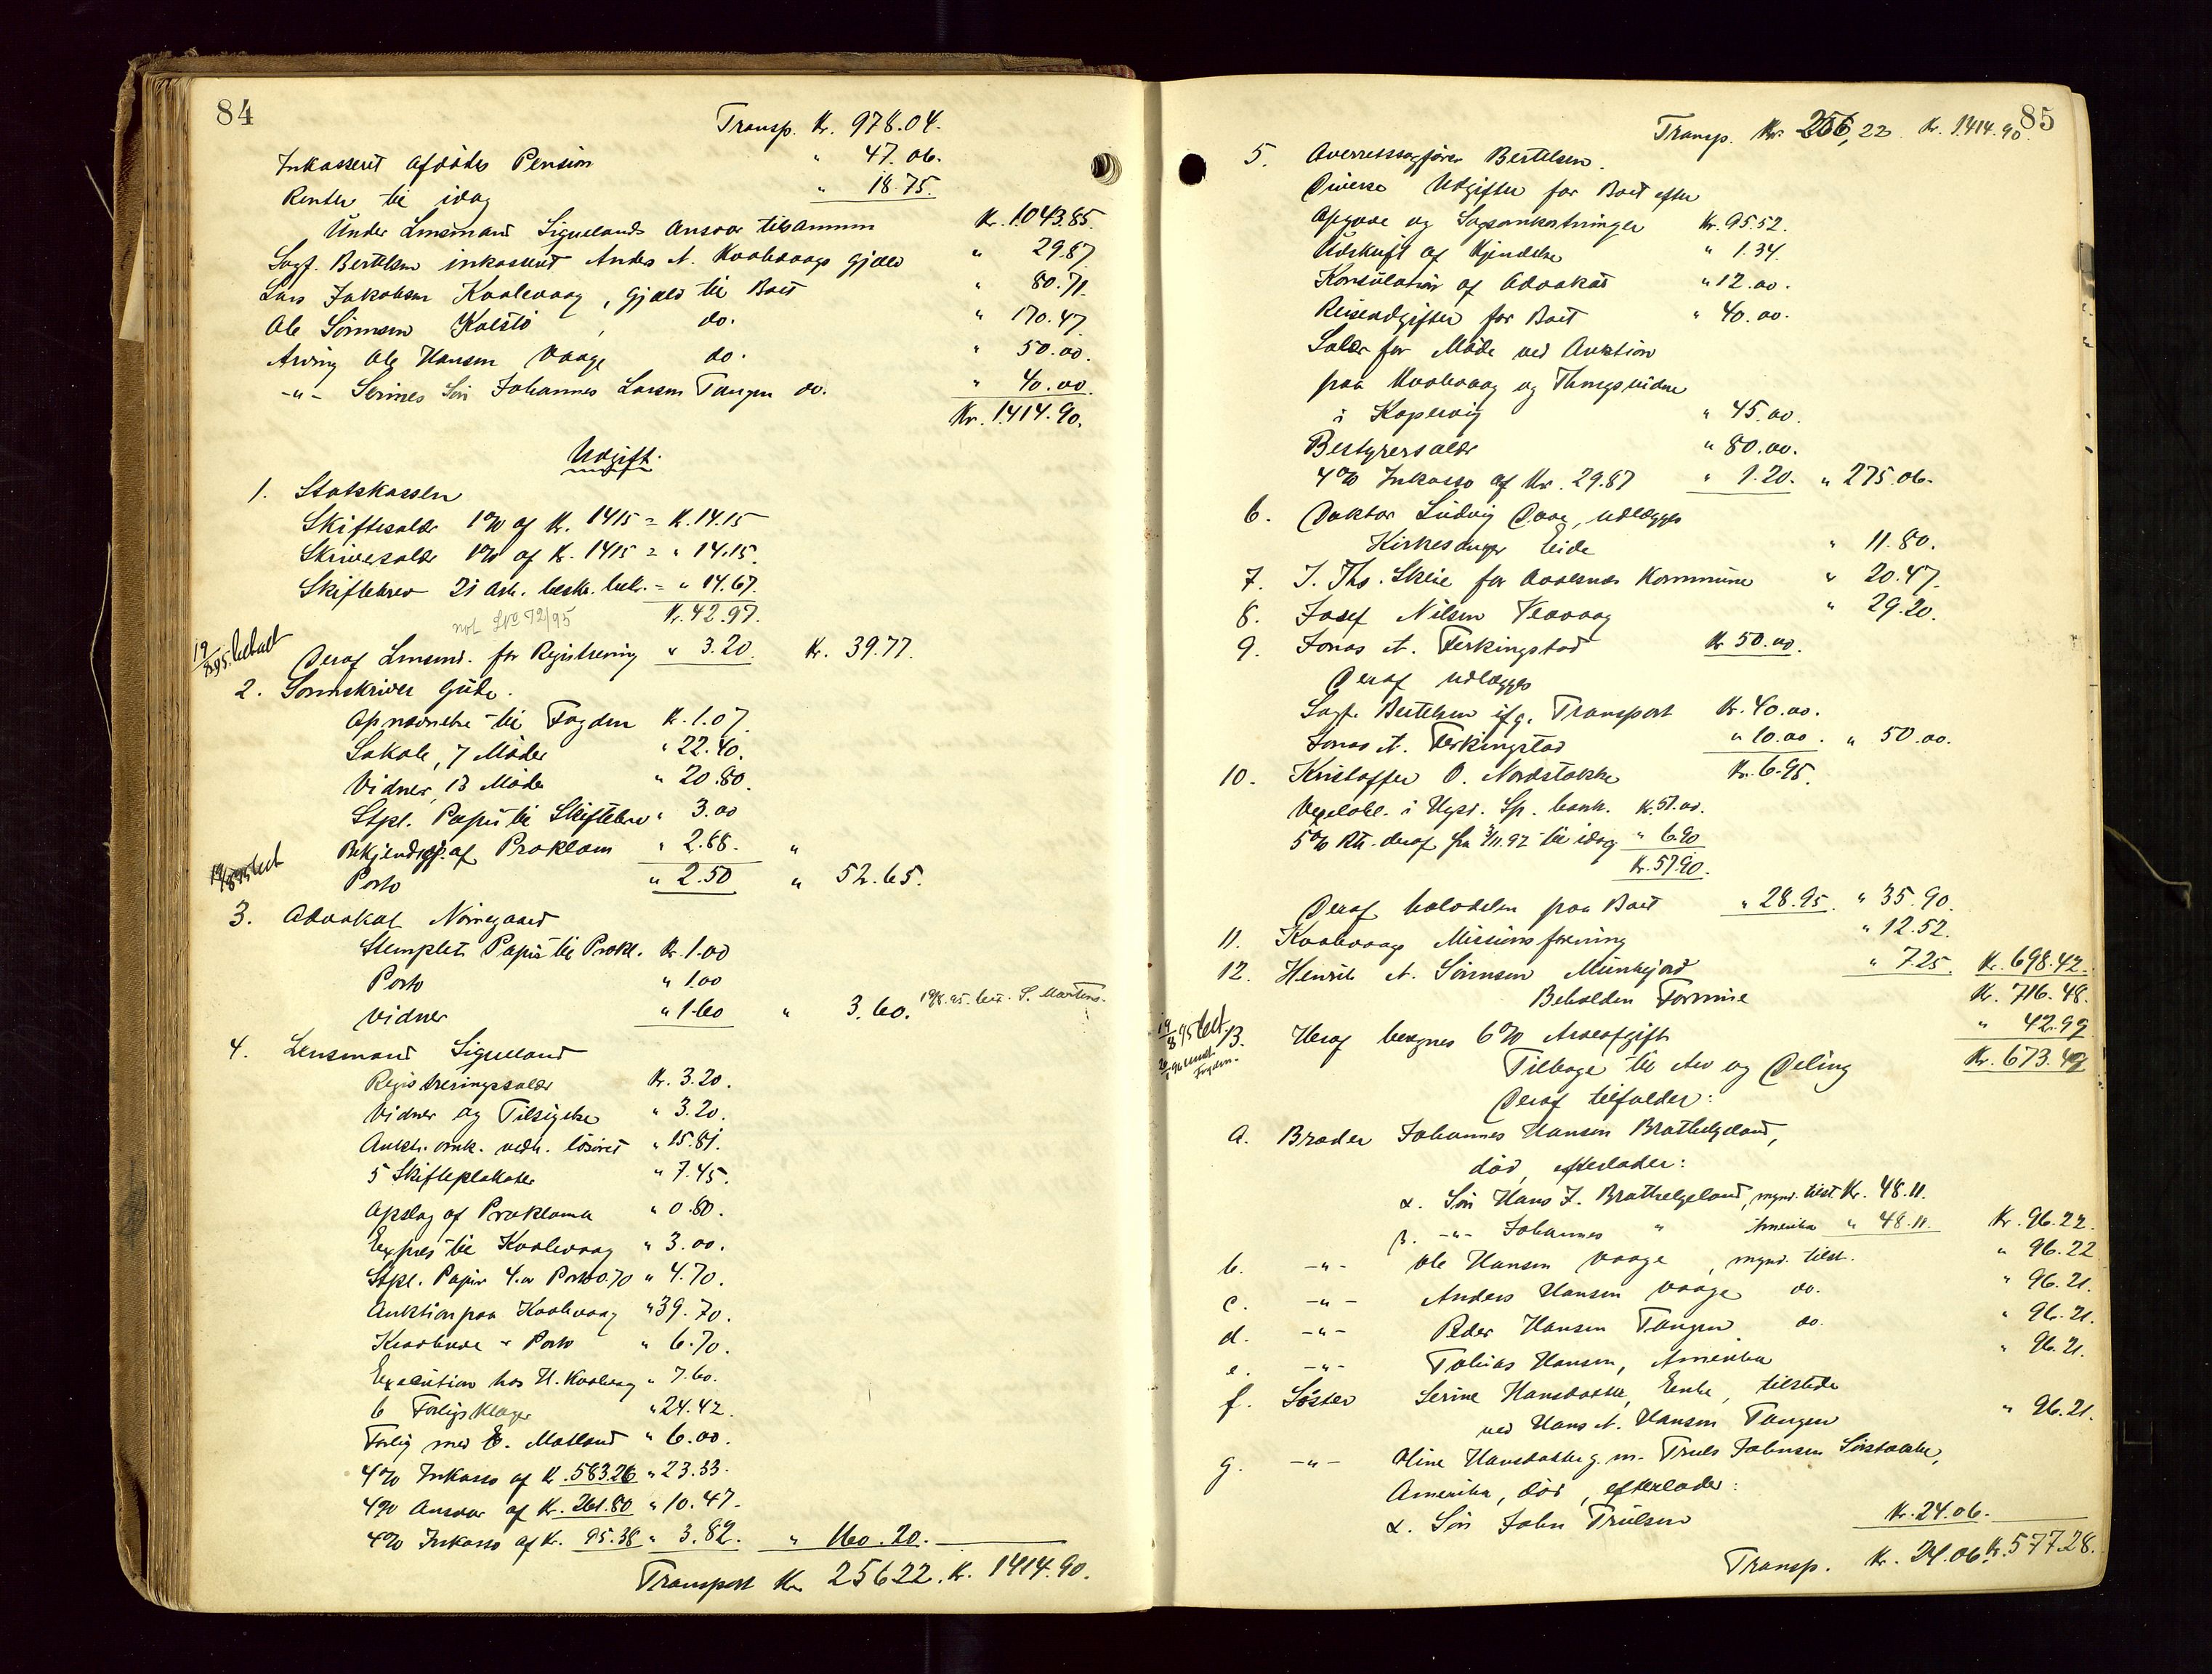 84
Transp. Kr. 978.04.
Inkasseret afdödes Pension " 47.06.
Renter til idag " 18.75.
Under Lensmand Siquelands Ansvar tilsammen Kr. 1043.85.
Sagf. Bertelsen inkasseret Anders A. Kvalevaags gjæld " 29.87.
Lars Jakobsen Kvalevaag, gjæld til Boet " 80.71.
Ole Sörensen Kolstö, do. " 170.47.
Arving Ole Hansen Vaage do. " 50.00.
-"- Serines Sön Johannes Larsen Tangen do. " 40.00.
Kr. 1414.90.
Udgift.
1. Statskassen
Skiftesalær 1% af Kr. 1415 = Kr. 14.15
Skrivesalær 1% af Kr. 1415 = " 14.15.
Skiftebrev 21 Ark. besk. bet. = " 14.67.
not No 72/95 Kr. 42.97.
19/8 95. betalt
Deraf Lensmd. for Registrering " 3.20. Kr. 39.77.
2. Sorenskriver Gude.
Opnævnelse til Fogden Kr. 1.07.
Lokale, 7 Möder " 22.40.
Vidner, 13 Möder " 20.80.
Stpl. Papir til Skiftebrev " 3.00
Bekjendtgj. af Proklama " 2.88. "
19/8 95 bet
Porto " 2.50 " 52.65.
3. Advokat Nörregaard
Stemplet Papir til Prokl. Kr. 1.00
Porto " 1.00
Vidner " 1.60 " 3.60. 19/8.95. bet. S. Martens.
4. Lensmand Siqueland
Registreringssalær Kr. 3.20.
Vidner og Tilsigelse " 3.20.
Auktr. omk. vedk. lösöret " 15.81.
5 Skifteplakater " 7.45.
Opslag af Proklama " 0.80.
Expres til Kvalevaag " 3.00.
Stpl. Papir 4.00 Porto 0.70 " 4.70.
Auktion paa Kvalevaag " 39.70.
Kvarhuse " Porto " 6.70.
Execution hos H. Kvalevag " 7.60.
6 Forligsklager " 24.42.
Forlig med E. Matland " 6.00.
4% Inkasso af Kr. 583.26 " 23.33.
4% Ansvar af Kr. 261.80 " 10.47.
4% Inkasso af Kr. 95.38 " 3.82. " 160.20.
Transport Kr. 256.22. Kr. 1414.90.
85
Transp. Kr. 256,22 Kr. 1414.90
5. Overretssagförer Bertelsen.
Diverse Udgifter for Boet efter
Opgave og Sagsomkostninger Kr. 95.52.
Udskrift af Kjendelse " 1.34.
Konsulation af Advokat " 12.00.
Reiseudgifter for Boet " 40.00.
Salær for Möde ved Auktion
paa Kvalevaag og Thingsvidne
i Kopervig " 45.00.
Bestyrersalær " 80.00.
4% Inkasso af Kr. 29.87 " 1.20. " 275.06.
6. Doktor Ludvig Daae, udlægges
Kirkesanger Eide " 11.80.
7. J. Ths. Skeie for Avaldsnes Kommune " 20.47.
8. Josef Nilsen Veavaag " 29.20.
9. Jonas A. Ferkingstad Kr. 50.00.
Deraf udlægges
Sagf. Bertelsen ifg. Transport Kr. 40.00.
Jonas A. Ferkingstad " 10.00. " 50.00.
10. Kristoffer O. Nordstokke Kr. 6.95.
Vexelobl. i Hgsd. Sp. bank. Kr. 51.00.
5% Rtr. deraf fra 3/11.92 til idag " 6.90
Kr. 57.90.
Deraf halvdelen paa Boet " 28.95. " 35.90.
11. Kvalevaags Missionsforening " 12.52.
12. Henrik A. Sörensen Munkejord " 7.25. Kr. 698.42.
Beholden Formue Kr. 716.48.
19/8 95 bet. 13. Heraf beregnes 6% Arveafgift " 42.99
Tilbage til Arv og Deling Kr. 673.49
Deraf tilfalder:
a. Broder Johannes Hansen Brathelgeland,
död, efterlader:
α. Sön Hans J. Brathelgeland, mynd. tilst. Kr. 48.11.
β. -"- Johannes " Amerika " 48.11. Kr. 96.22.
b. -"- Ole Hansen Vaage, mynd. tilst. " 96.22
c. -"- Anders Hansen Vaage do. " 96.21.
d. -"- Peder Hansen Tangen do. " 96.21.
e. -"- Tobias Hansen, Amerika " 96.21.
f. Söster Serine Hansdatter, Enke, tilstede
ved Hans A. Hansen Tangen " 96.21.
g. -"- Oline Hansdatter g. m. Truls Johnsen Sörstokke,
Amerika, död, efterlader:
α. Sön John Trulsen Kr. 24.06.
Transp. Kr. 24.06 Kr. 577.28.